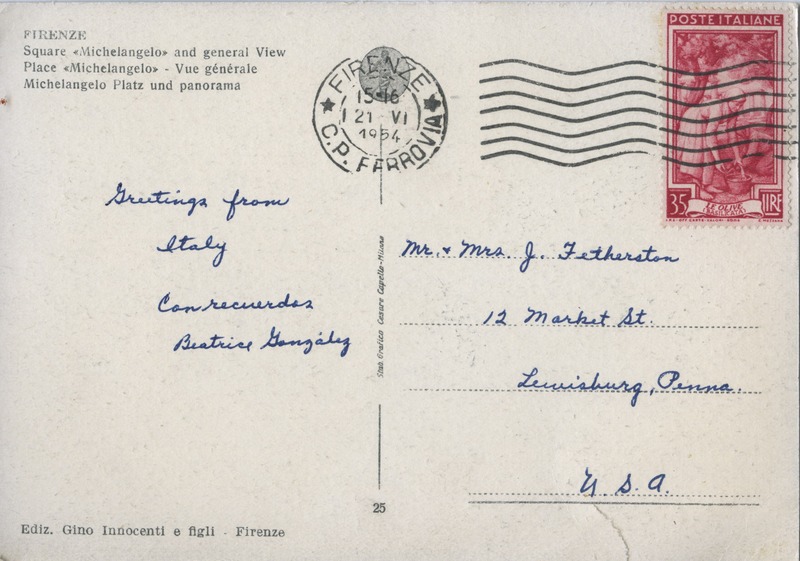 FIRENZE
Square «Michelangelo» and general View
Place «Michelangelo» - Vue générale
Michelangelo Platz und panorama
FIRENZE
15-16
21 VI
1954
C.P. FERROVIA
POSTE ITALIANE
35 LE OLIVE LIRE
Greetings from
Italy
Con recuerdos
Beatrice González
Stab. Grafico Cesare Capello-Milano
Mr. & Mrs. J. Fetherston
12 Market St.
Lewisburg, Penna.
U. S. A.
25
Ediz. Gino Innocenti e figli - Firenze